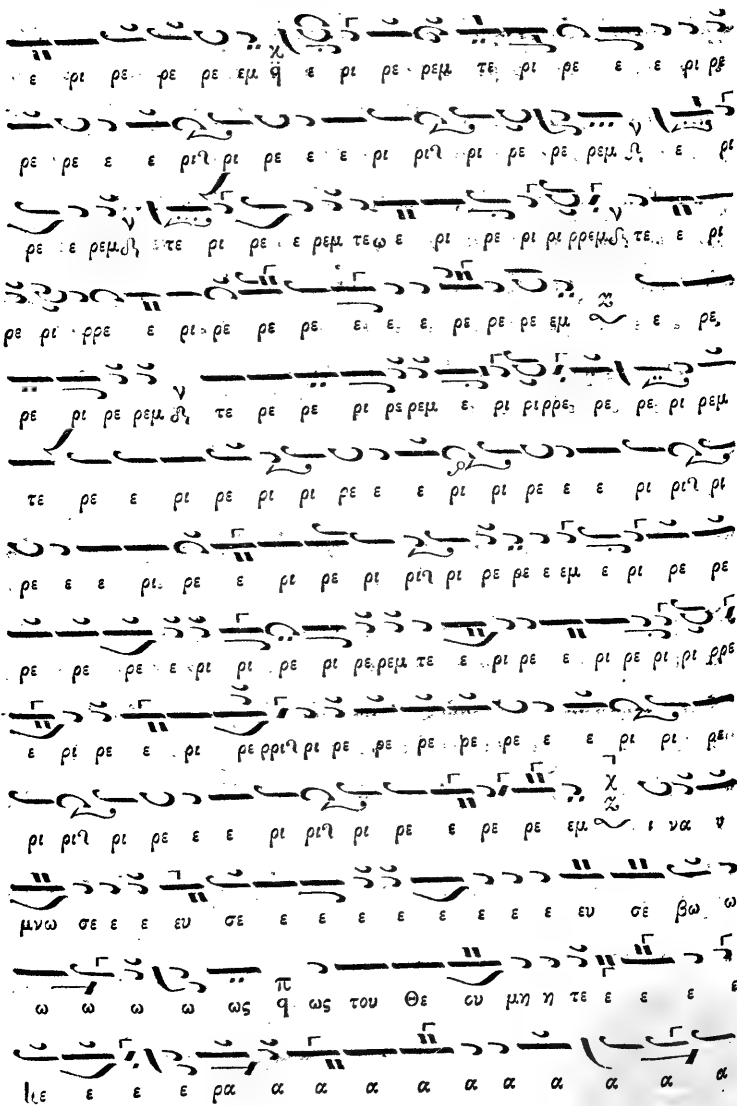 ε ρι ρε ρε ρε εμ q ε ρι ρε ρεμ τε ρι ρε ε ε ρι ρε
ρε ρε ε ε ριζ ρι ρε ε ε ρι ριζ ρι ρε ρε ρεμ ε ρι
ρε ε ρεμ ε τε ρι ρε ε ρεμ τεω ε ρι ρε ρι ρι ρρεμ τε ε ρι
ρε ρι ρρε ε ρι ρε ρε ρε ε ε ε ρε ρε ρε εμ ε ρε
ρε ρι ρε ρεμ τε ρε ρε ρι ρε ρεμ ε ρι ριρρε ρε ρε ρι ρεμ
τε ρε ε ρι ρε ρι ρι ρε ε ε ρι ρι ρε ε ε ρι ριζ ρι
ρε ε ε ρι ρε ε ρι ρε ρι ριζ ρι ρε ρε ε εμ ε ρι ρε ρε
ρε ρε ρε ε ρι ρι ρε ρι ρε ρεμ τε ε ρι ρε ε ρι ρε ρι ρι ρρε
ε ρι ρε ε ρι ρε ρριζ ρι ρε ρε ρε ρε ρε ε ε ρι ρι ρε
ρι ριζ ρι ρε ε ε ρι ριζ ρι ρε ε ρε ρε εμ ι να υ
μνω σε ε ε ευ σε ε ε ε ε ε ε ε ε ευ σε βω ω
ω ω ω ω ως π q ως του Θε ου μη η τε ε ε ε ε
ε ε ε ρα α α α α α α α α α α